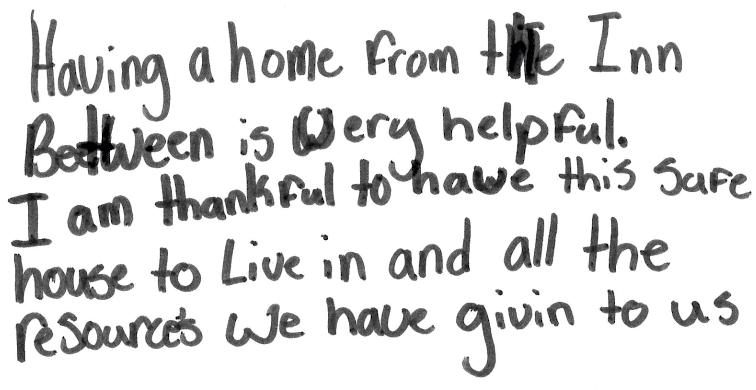 Having a home from the Inn
Beetween is Very helpful.
I am thankful to hawe this safe
house to Live in and all the
resources we have givin to us